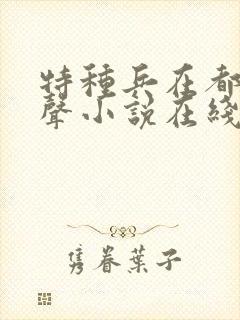 特種兵在都
聲小説在綫
隽眷葉子